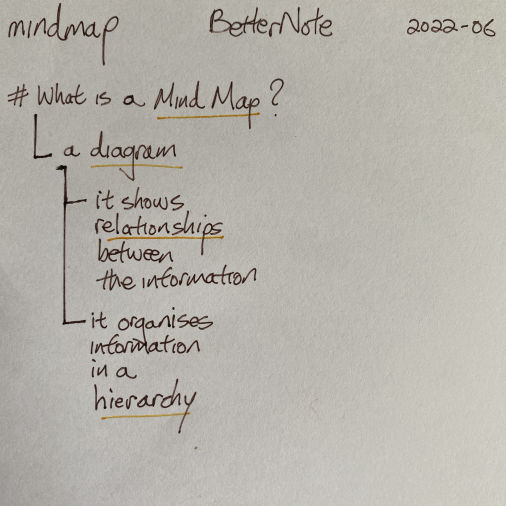 mindmap BetterNote 2022-06
# What is a Mind Map?
a diagram
it shows
relationships
between
the information
it organises
information
in a
hierarchy